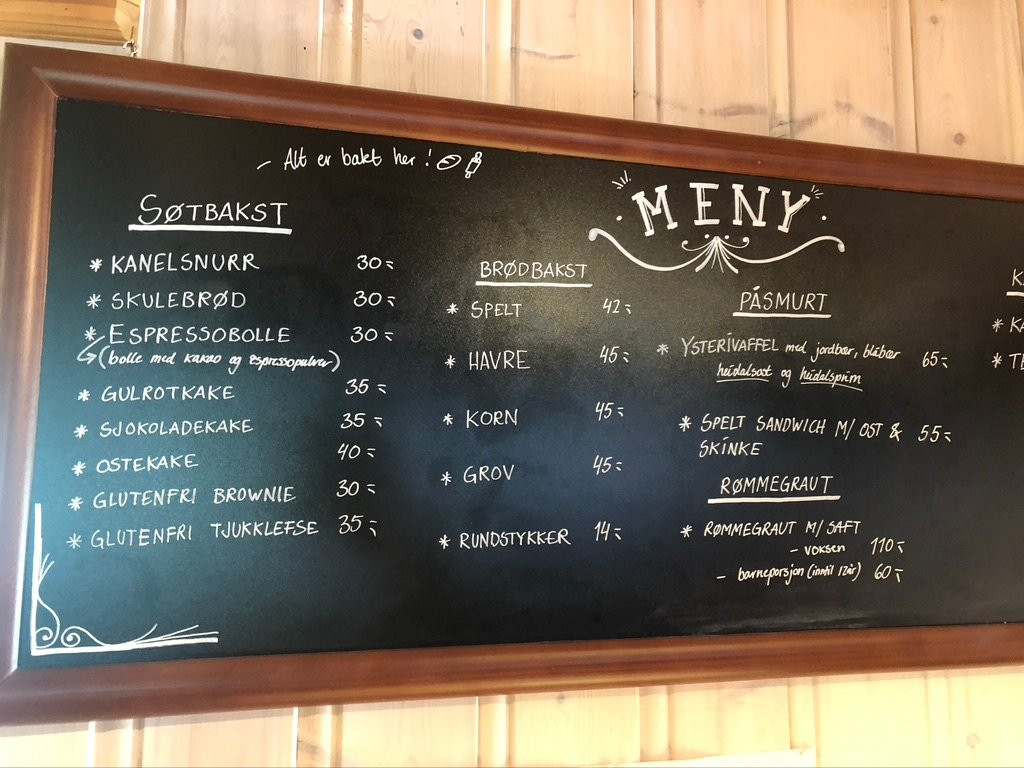 - Alt er bakt her!
MENY
SØTBAKST
* KANELSNURR 30,-
* SKULEBRØD 30,-
* ESPRESSOBOLLE 30,-
(bolle med kakao og espressopulver)
* GULROTKAKE 35,-
* SJOKOLADEKAKE 35,-
* OSTEKAKE 40,-
* GLUTENFRI BROWNIE 30,-
* GLUTENFRI TJUKKLEFSE 35,-
BRØDBAKST
* SPELT 42,-
* HAVRE 45,-
* KORN 45,-
* GROV 45,-
* RUNDSTYKKER 14,-
PÅSMURT
* YSTERIVAFFEL med jordbær, blåbær 65,-
heidalsost og heidalsprim
* SPELT SANDWICH M/ OST & 55,-
SKINKE
RØMMEGRAUT
* RØMMEGRAUT M/ SAFT
- voksen 110,-
- barneporsjon (inntil 12år) 60,-